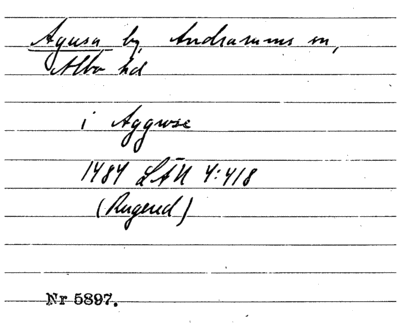 Agusa by, Andrarums sn,
Albo hd
i Aggwse
1484 LÄU 4:418
(Rugerud)
Nr 5897.